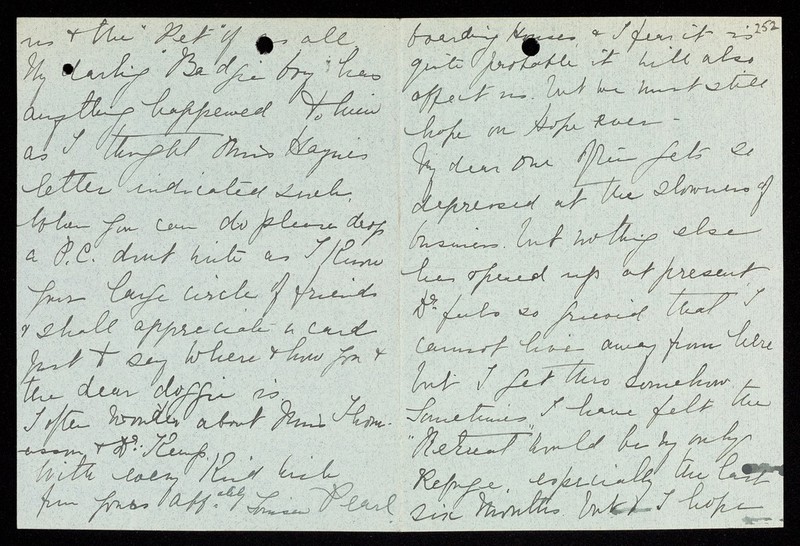 us & the "Pet" if as all
My darling "Badgie boy" has
anything happened to him
as I thought Miss Haynes
letter indicated such.
When you can do please drop
a P.C. dont write as I know
your large circle of friends
& shall appreciate a card
just to say where & how you &
the dear doggie is
I often wonder about Miss Thom-
asson & Dr. Kemp.
With every kind wish
from yours affctly Louisa Pearl
252
boarding Houses & I fear it is
quite probable it will also
affect us. but we must still
hope on Hope ever -
My dear one often gets so
depressed at the slowness of
business. but nothing else
has opened up at present
Dr. feels so grieved that I
cannot live away from here
but I get thro somehow.
Sometimes I have felt the
"Retreat" would be my only
Refuge, especially the last
six months but I hope